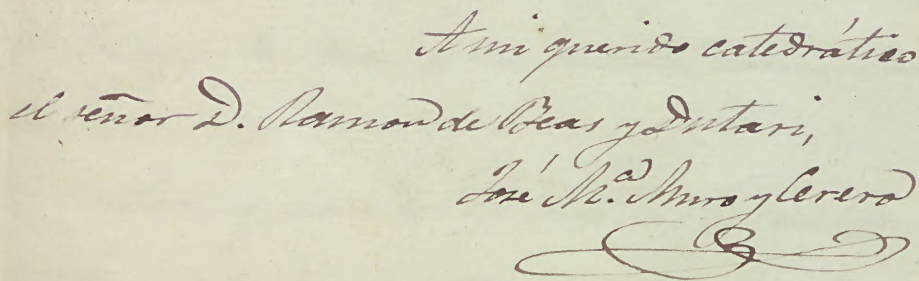 A mi querido catedrático
el señor D. Ramon de Beas y Dutari,
José M.ª Muro y Cerero